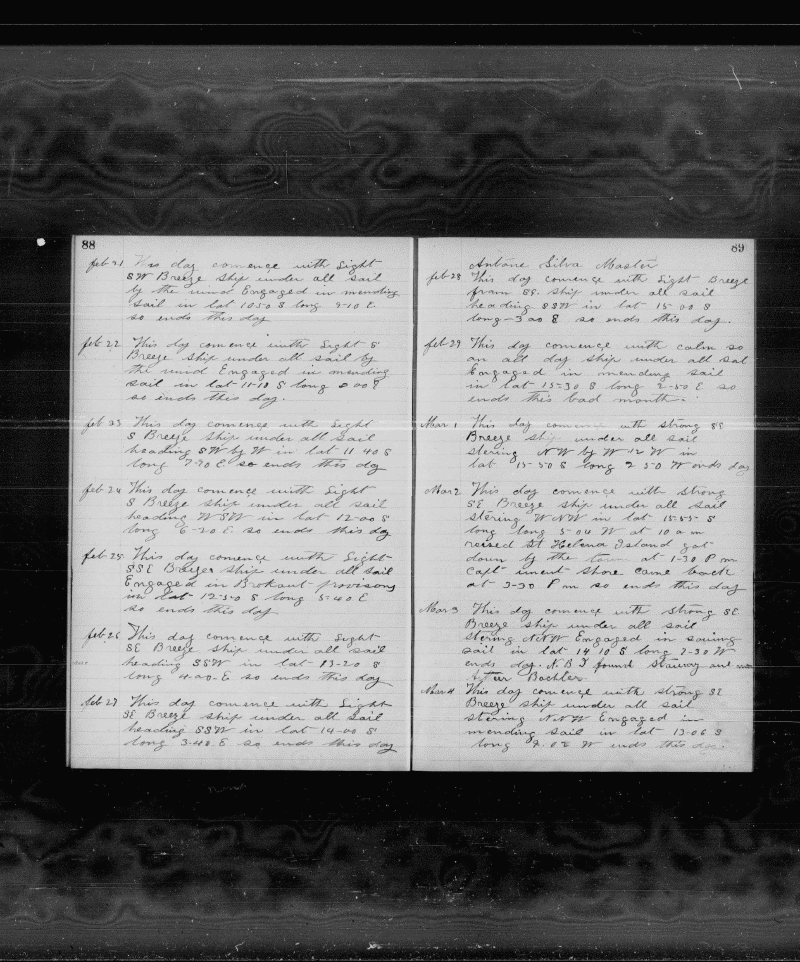 88
feb 21 This day comence with Light
SW Breeze Ship under all sail
by the wind Engaged in mending
sail in lat 10-50 S long 9-10 E
so ends this day
feb 22 This day comence with Light S
Breeze Ship under all sail by
the wind Engaged in mending
sail in lat 11-18 S long 8 00 E
so ends this day.
feb 23 This day comence with Light
S Breeze Ship under all sail
heading SW by W in lat 11 40 S
long 7-20 E so ends this day
feb 24 This day comence with Light
S Breeze Ship under all sail
heading WSW in lat 12-00 S
long 6-20 E. so ends this day
feb 25 This day comence with Light
SSE Breeze Ship under all sail
Engaged in Brokout provisons
in lat 12-50 S long 5-40 E
so ends this day
feb 26 This day comence with Light
SE Breeze Ship under all sail
heading SSW in lat 13-20 S
long 4-00-E so ends this day
feb 27 This day comence with Light
SE Breeze Ship under all sail
heading SSW in lat 14-00 S
long 3-40. E so ends this day
89
Antone Silva Master
feb 28 This day comence with Light Breeze
fram SE. Ship under all sail
heading SSW in lat 15 00 S
long-3 00 E so ends this day.
feb 29 This day comence with calm so
on all day Ship under all sal
Engaged in mending sail
in lat 15-30 S long 2-50 E so
ends this bad month
Mar 1 This day comence uth strong SE
Breeze Ship under all sail
stering NW by W 1/2 W in
lat 15-50 S long 2 50 W ends day
Mar 2 This day comence with strong
SE Breeze Ship under all sail
stering WNW in lat 15-55 S
long long 5-04 W at 10 a m
reised St Helena Island got
down by the town at 1-30 P m
Capt unent Shore came back
at 3-30 P m so ends this day
Mar 3 This day comence uth strong SE
Breeze Ship under all sail
stering NNW Engaged in souing
sail in lat 14 10 S long 7-30 W
ends day. N.B I found Stauway
Mar 4 This day comence with strong SE
Breeze Ship under all sail
stering NNW Engaged in
mending sail in lat 13-06 S
long W ends this day